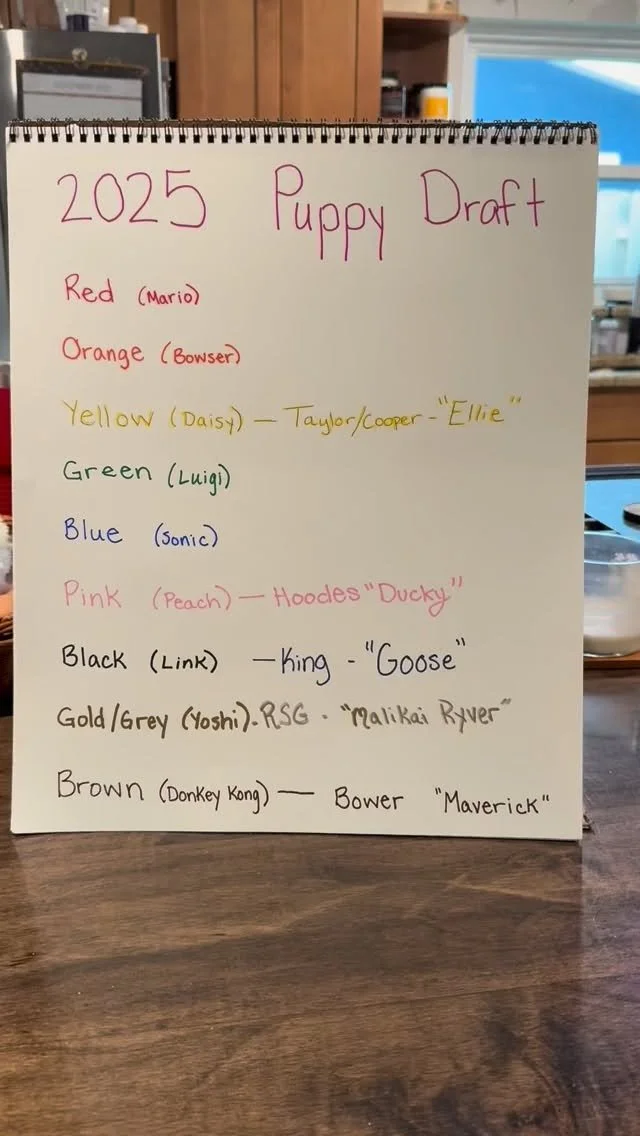 2025 Puppy Draft
Red (Mario)
Orange (Bowser)
Yellow (Daisy) — Taylor/Cooper - "Ellie"
Green (Luigi)
Blue (Sonic)
Pink (Peach) — Hoodes "Ducky"
Black (Link) — King - "Goose"
Gold/Grey (Yoshi). RSG - "Malikai Ryver"
Brown (Donkey Kong) — Bower "Maverick"